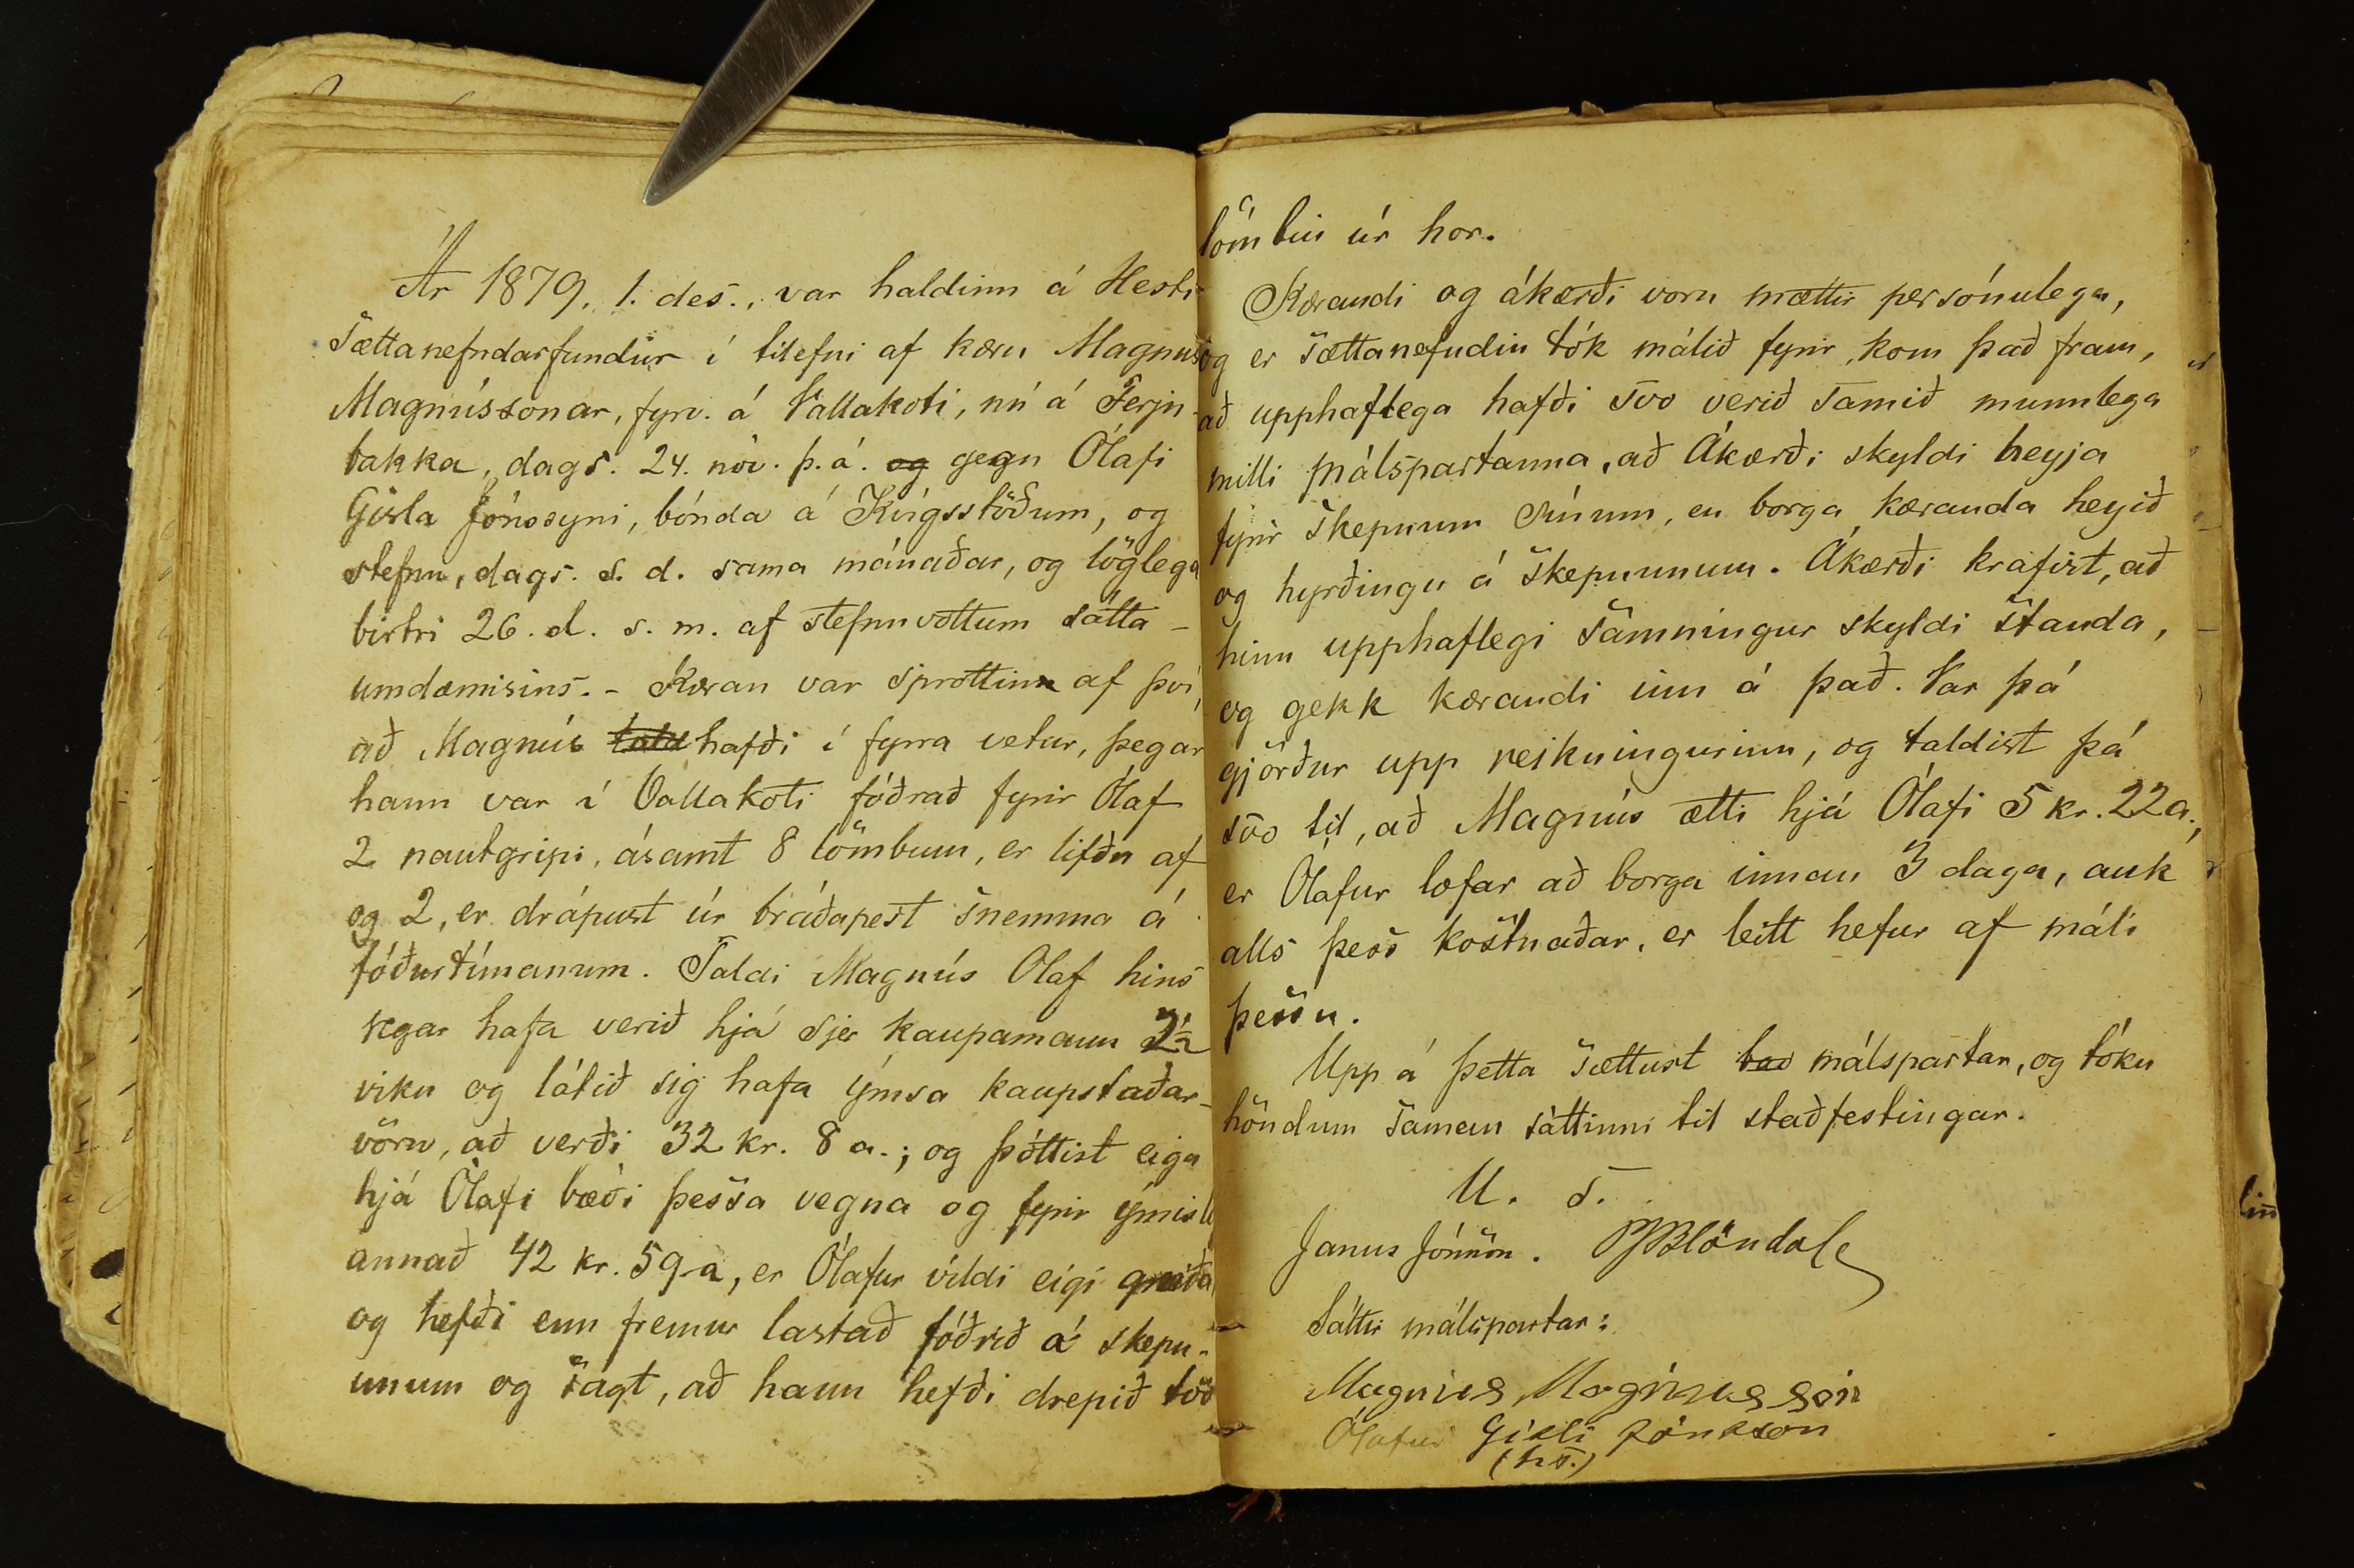 Ár 1879, 1. des., var haldinn á Hesti
sættanefndarfundur í tilefni af kæru Magnúss
Magnússonar, fyrv. á Vallakoti, nú á Ferju-
bakka, dags. 24. nóv. þ. á. og gegn Ólafi
Gísla Jónssyni, bónda á Kvígsstöðum, og
stefnu, dags. s. d. sama mánaðar, og löglega
birtri 26. d. s. m. af stefnuvottum sátta-
umdæmisins. - Kæran var sprottinn af því,
að Magnús hafði í fyrra vetur, þegar
hann var í Vallakoti fóðrað fyrir Ólaf
2 nautgripi, ásamt 8 lömbum, er lifðu af
og 2, er drápust úr bráðapest snemma á
fóðurtímanum. Taldi Magnús Olaf hins
vegar hafa verið hjá sjer kaupamann 2½
viku og látið sig hafa ýmsa kaupstaðar-
vöru, að verði 32 kr. 8 a.; og þóttist eiga
hjá Ólafi bæði þessa vegna og fyrir ýmisl
annað 42 kr. 59 a, er Ólafur vildi eigi greiða
og hefði enn fremur lastað fóðrið á skepn-
unum og sagt, að hann hefði drepið töð
lömbin úr hor.
Kærandi og ákærði voru mættir persónulega,
og er sættanefndin tók málið fyrir, kom það fram,
að upphaflega hafði svo verið samið munnlega
milli málspartanna, að Ákærði skyldi heyja
fyrir skepnum sínum, en borga kæranda heyið
og hyrðingu á skepnunum. Ákærði krafist, að
hinn upphaflegi samningur skyldi standa,
og gekk kærandi inn á það. Var þá
gjörður upp reikningurinn, og taldist þá
svo til, að Magnús ætti hjá Ólafi 5 kr. 22 a.,
er Ólafur lofar að borga innan 3 daga, auk
alls þess kostnaðar, er leitt hefur af máli
þessu.
Upp á þetta sættust málspartar, og tóku
höndum saman sáttinni til staðfestingar.
U. s.
Janus Jónsson. PJBlöndal
Sáttir málspartar:
Magnús Magnússon
Ólafur Gísli Jónsson
(h.s.)